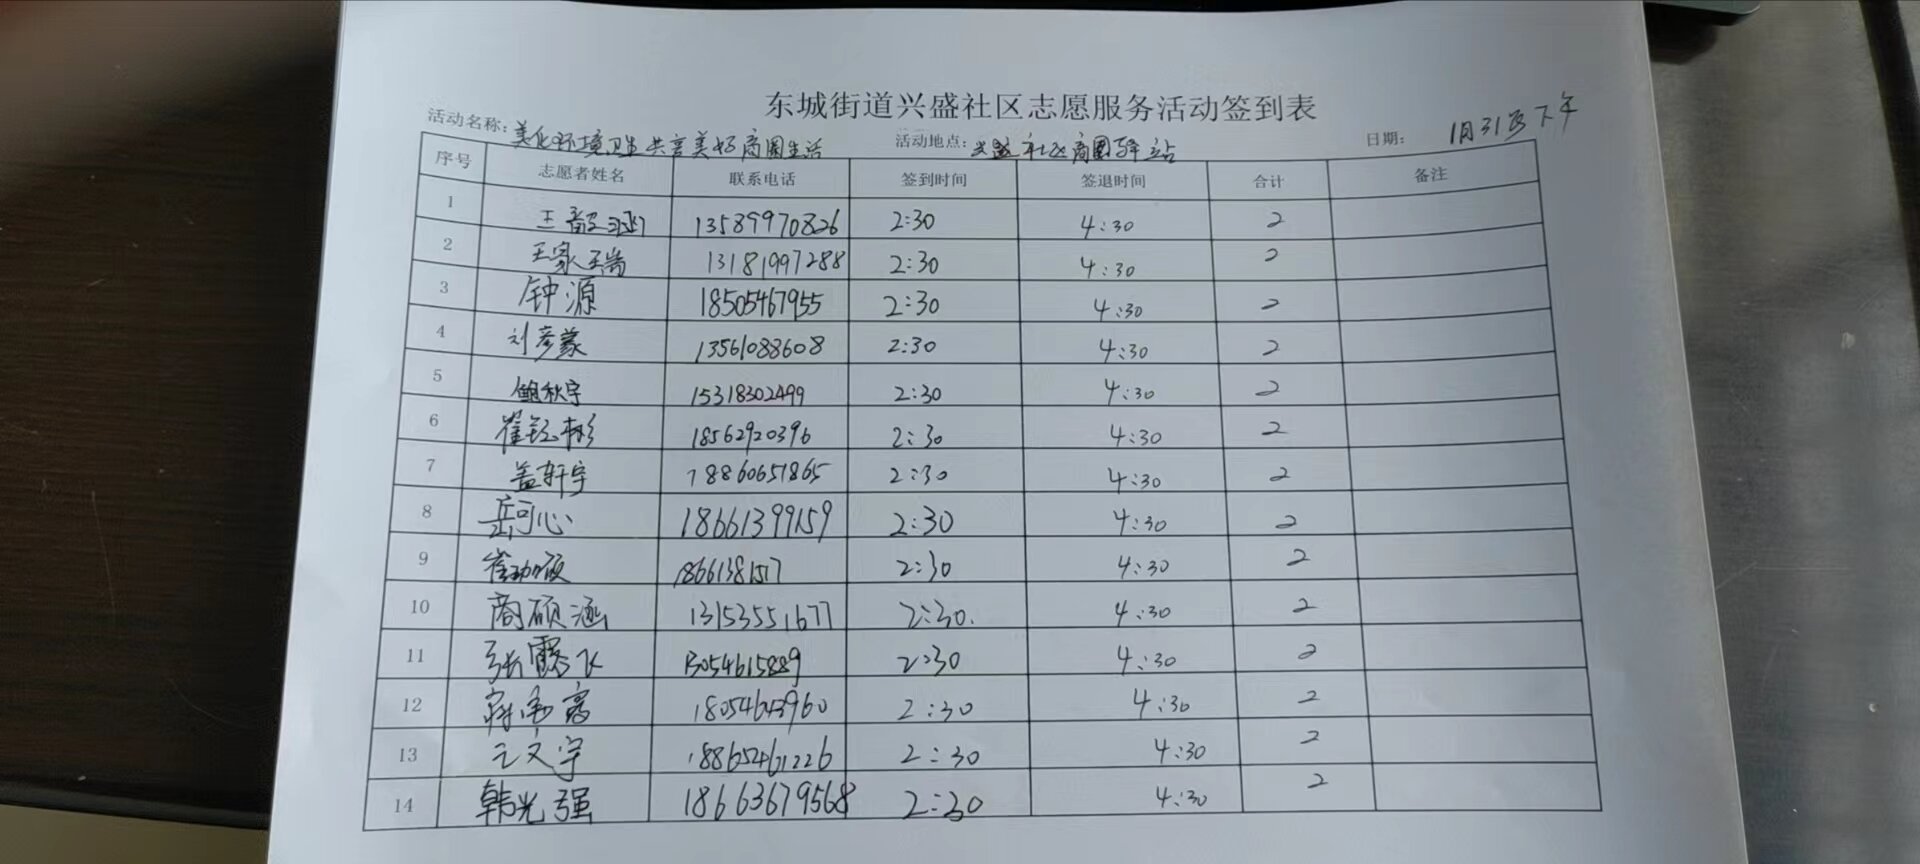 东城街道兴盛社区志愿服务活动签到表
活动名称: 美化环境卫生共享美好商圈生活 活动地点: 兴盛社区商圈驿站 日期: 1月31日下午
序号 志愿者姓名 联系电话 签到时间 签退时间 合计 备注
1 王 13589970826 2:30 4:30 2
2 王家瑞 13181997288 2:30 4:30 2
3 钟源 18505467955 2:30 4:30 2
4 刘彦蒙 13561088608 2:30 4:30 2
5 鲍秋宇 15318302499 2:30 4:30 2
6 崔钰彬 18562920396 2:30 4:30 2
7 盖轩宇 18860651865 2:30 4:30 2
8 岳可心 18661399159 2:30 4:30 2
9 崔 2:30 4:30 2
10 商硕涵 13153551677 2:30 4:30 2
11 张露飞 13054615889 2:30 4:30 2
12 2:30 4:30 2
13 文宇 18865461226 2:30 4:30 2
14 韩光强 18663679568 2:30 4:30 2